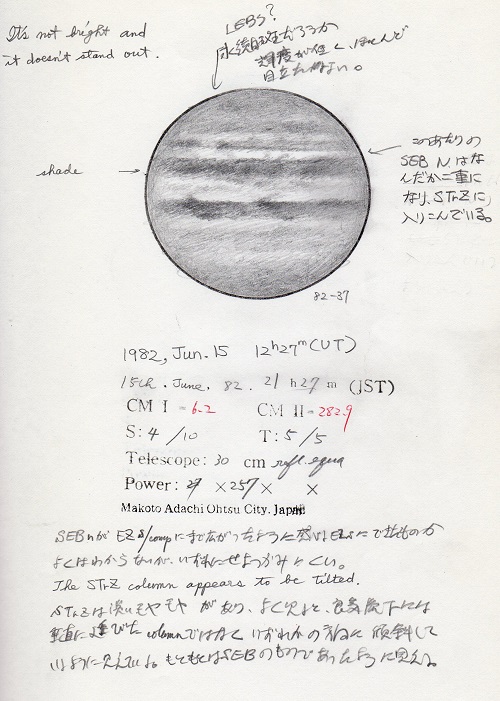 It's not bright and
it doesn't stand out.
LEBS?
永続白斑だろうか
輝度が低く、ほとんど
目立たない。
shade
このあたりの
SEB Nはな
んだか二重に
なり、STrZに
入りこんでいる。
82-37
1982, Jun. 15 12h27m (UT)
15th. June, 82. 21 h 27 m (JST)
CM I = 6.2 CM II = 282.9
S: 4 /10 T: 5 /5
Telescope: 30 cm refl. equa
Power: × 257 × ×
Makoto Adachi Ohtsu City, Japan
SEBnが EZ にまで広がったように
よくはわからないが、いずれにせよつかみにくい。
The STrZ column appears to be tilted.
STrZは淡いモヤモヤがあり、よく見ると、良気流下には
垂直に延びた columnではなく いずれかの 傾斜して
いるように見えている。もともとはSEBのものであったように見える。